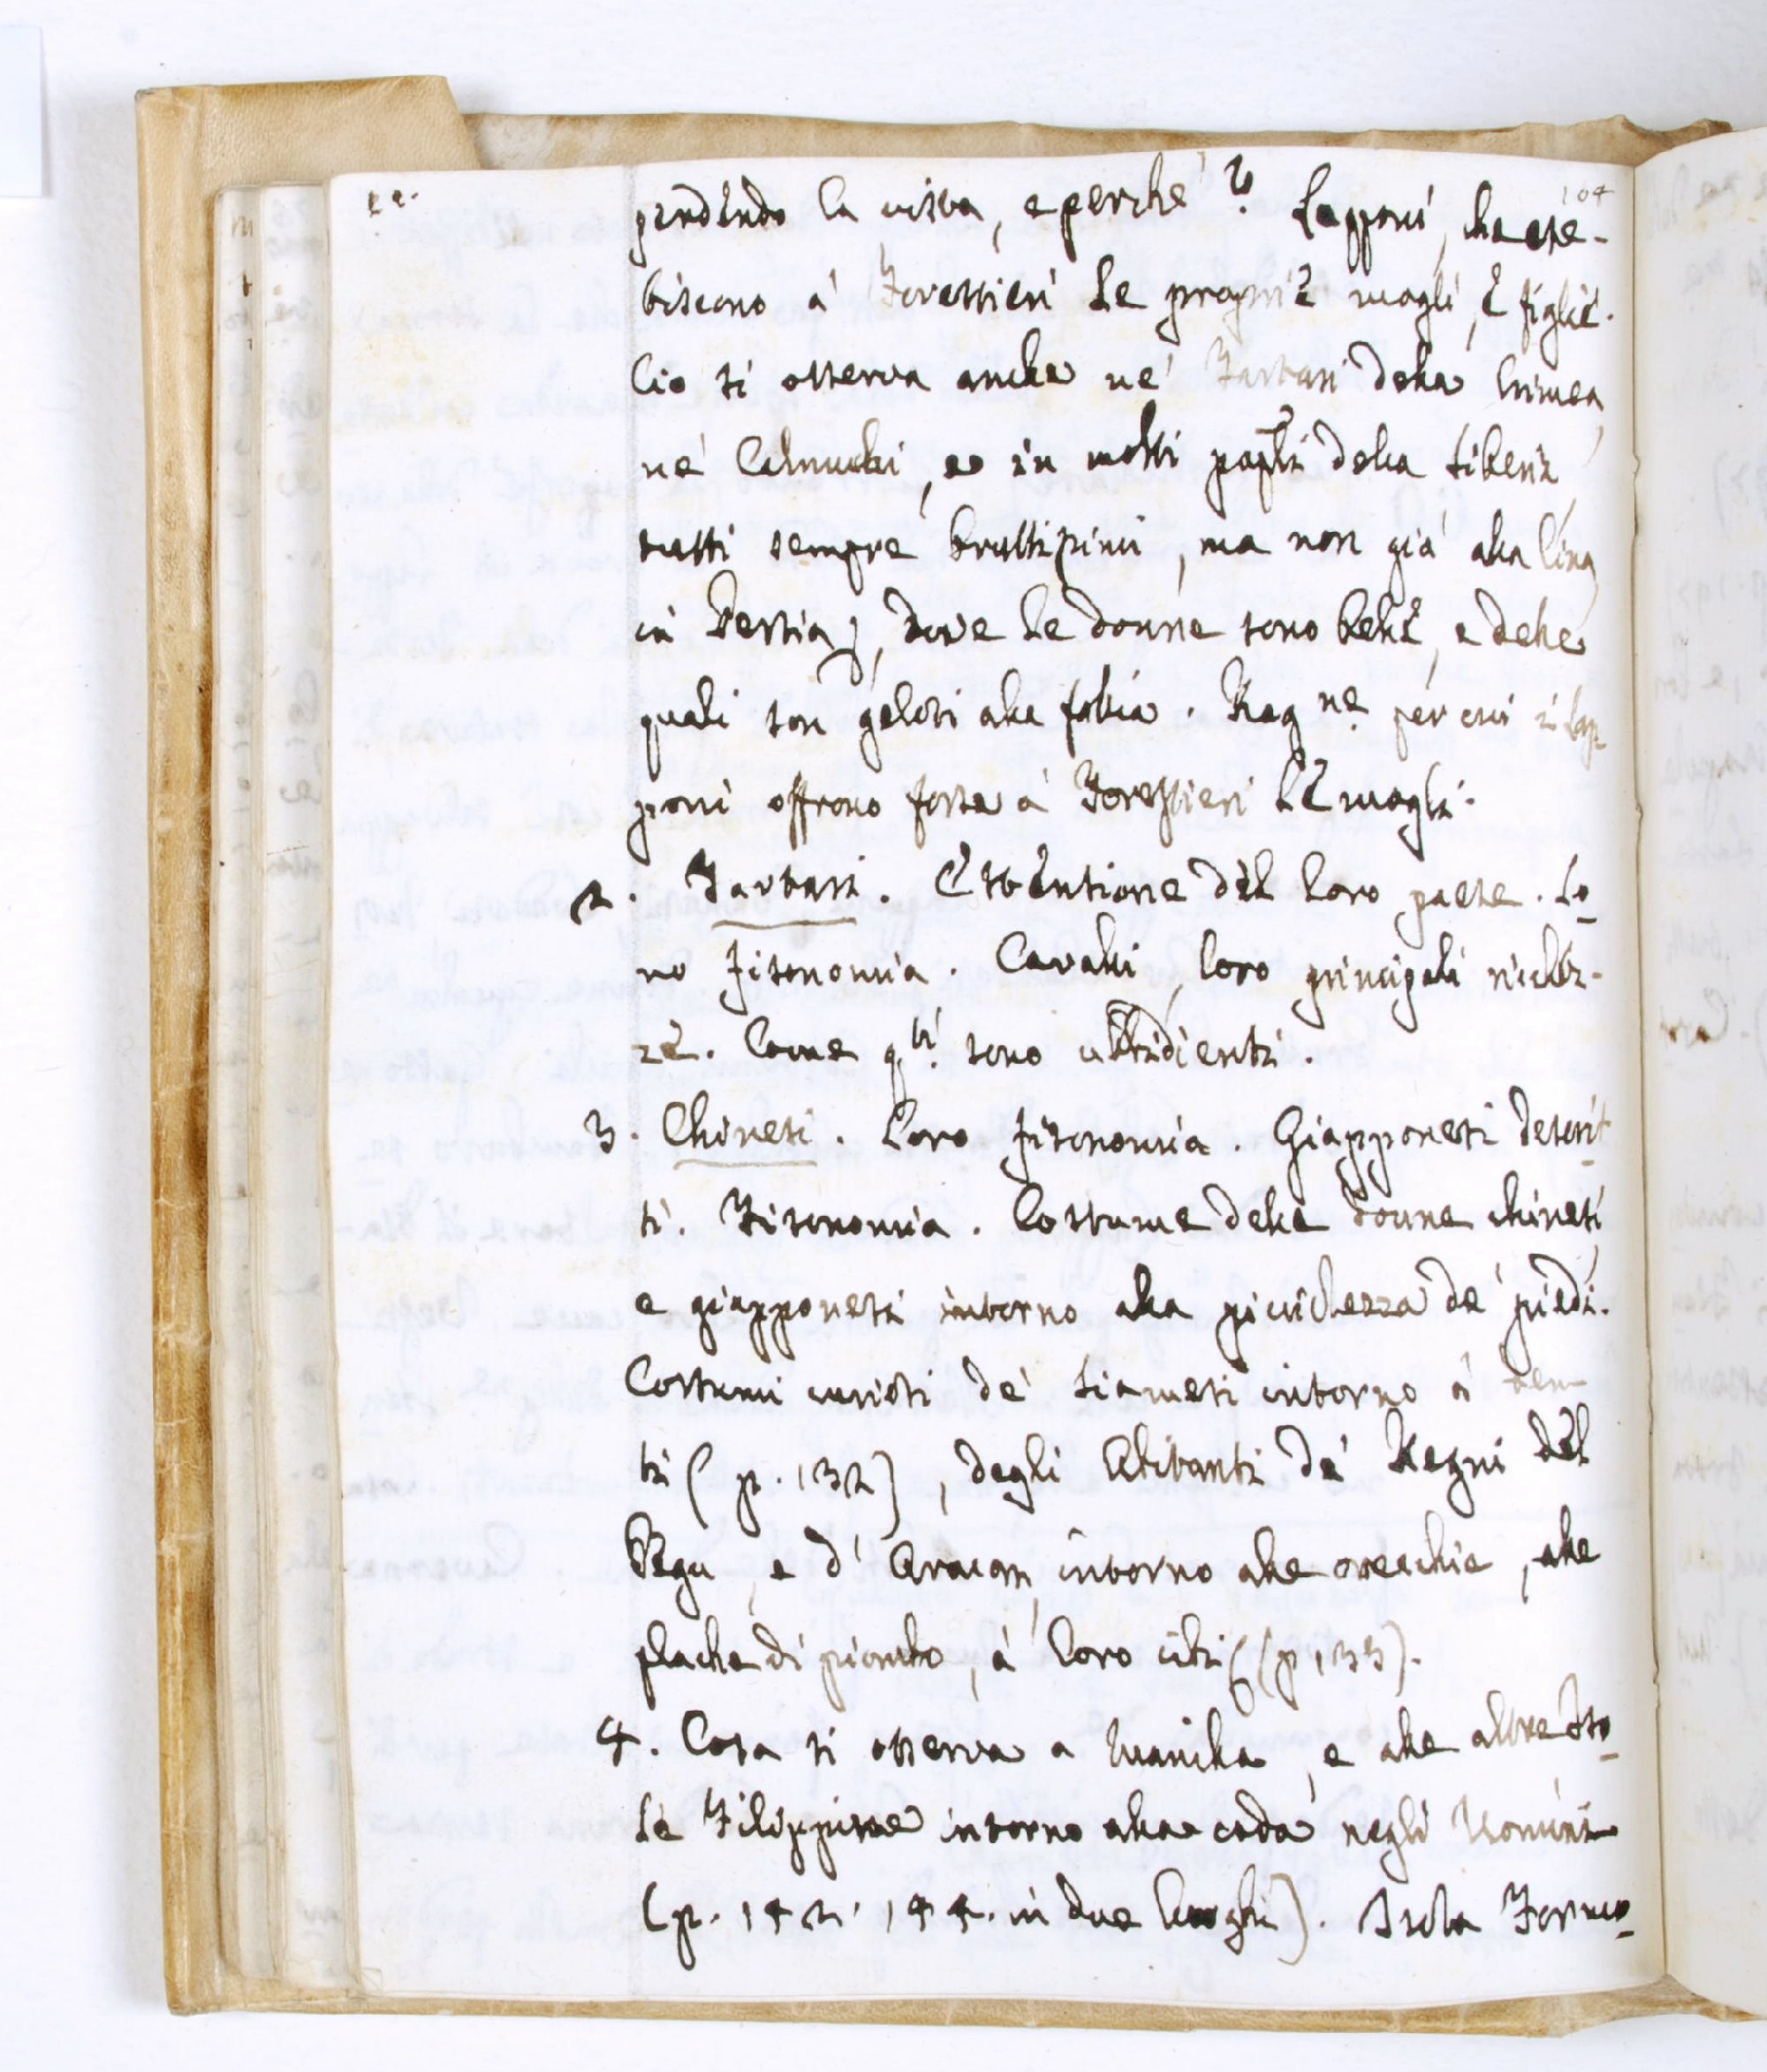 104
perdendo la vista, e perché? Lapponi, che esi-
biscono a' Forestieri le proprie mogli, e figlie.
Ciò si osserva anche ne' Tartari della Crimea,
ne' Calmucchi, e in molti popoli della Siberia,
tutti sempre bruttissimi, ma non già alla Cina,
in Persia, dove le donne sono belle, e delle
quali son gelosi alla follia. Rag.ne per cui i Lap-
poni offrono forse a' Forestieri le mogli.
2 Tartari. Estentione del loro paese. Lo-
ro fisonomia. Cavalli, loro principali richez-
ze. Come q.ti sono ubbidienti.
3. Chinesi. Loro fisonomia. Giapponesi descrit-
ti. Fisonomia. Costume delle donne chinesi,
e giapponesi intorno alla picichezza de' piedi.
Costumi curiosi de' Siamesi intorno a' den-
ti (p. 132), degli Abitanti de' Regni del
Pegu, e d'Aracan intorno alle orecchie, alle
placche di piombo, a' loro cibi (p 133).
4. Cosa si osserva a Manilla, e alle altre Iso-
le Filippine intorno alla coda negli Uomini
(p. 142. 144. in due luoghi). Isola Formo-